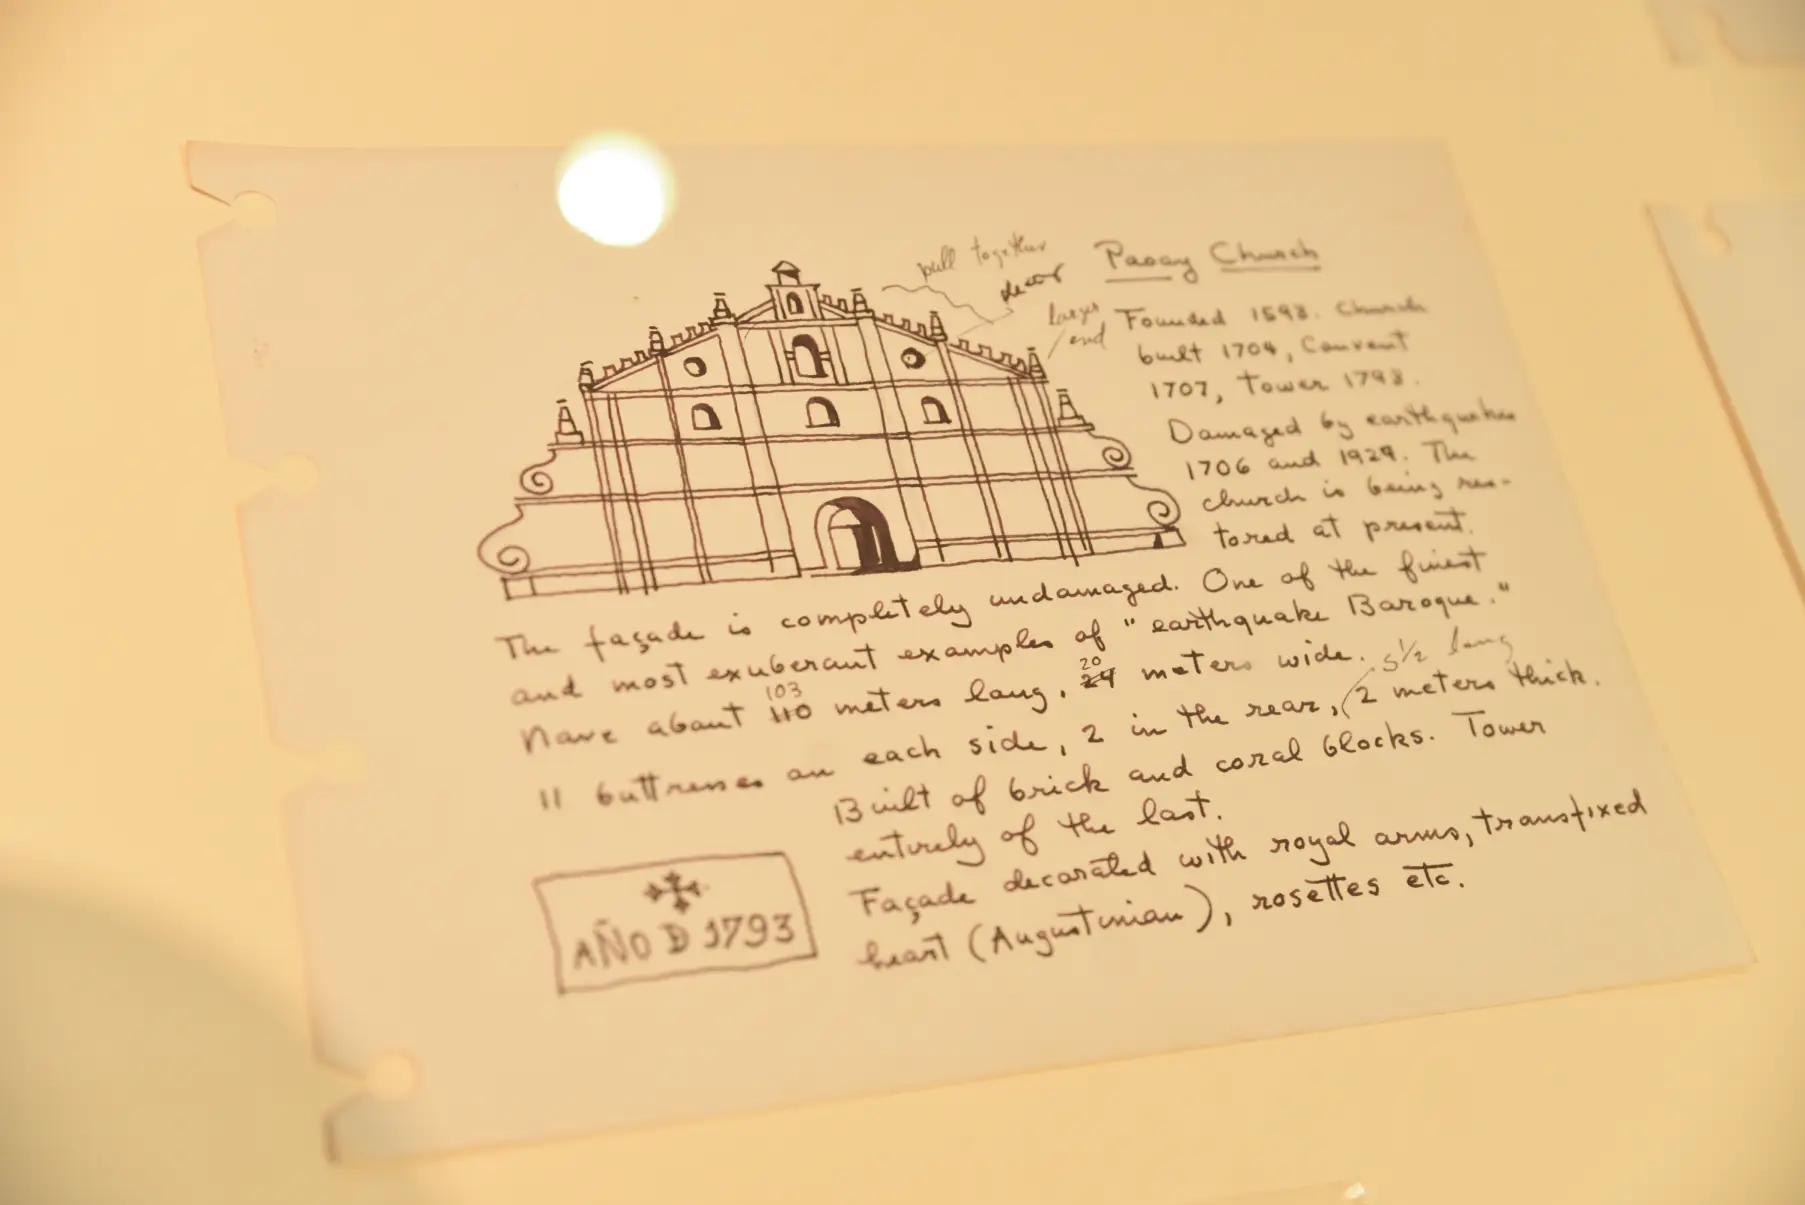 Paoay Church
pull together
decor
larger
end
Founded 1593. Church
built 1704, Convent
1707, Tower 1793.
Damaged by earthquakes
1706 and 1927. The
church is being res-
tored at present.
The façade is completely undamaged. One of the finest
and most exuberant examples of "earthquake Baroque."
Nave about 110 103 meters long, 24 20 meters wide.
5 1/2 long
11 buttresses on each side, 2 in the rear, (2 meters thick.
Built of brick and coral blocks. Tower
entirely of the last.
Façade decorated with royal arms, transfixed
heart (Augustinian), rosettes etc.
AÑO D 1793